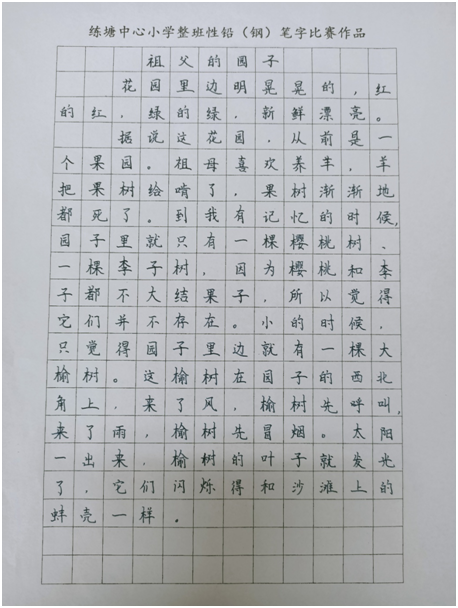 练塘中心小学整班性铅（钢）笔字比赛作品
祖父的园子
花园里边明晃晃的，红
的红，绿的绿，新鲜漂亮。
据说这花园，从前是一
个果园。祖母喜欢养羊，羊
把果树给啃了，果树渐渐地
都死了。到我有记忆的时候，
园子里就只有一棵樱桃树、
一棵李子树，因为樱桃和李
子都不大结果子，所以觉得
它们并不存在。小的时候，
只觉得园子里边就有一棵大
榆树。这榆树在园子的西北
角上，来了风，榆树先呼叫，
来了雨，榆树先冒烟。太阳
一出来，榆树的叶子就发光
了，它们闪烁得和沙滩上的
蚌壳一样。